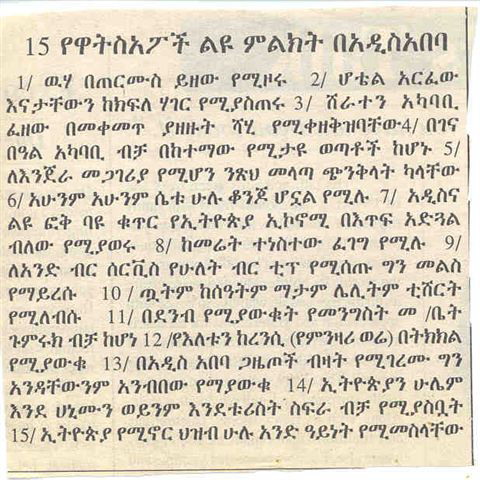 15 የዋትስአፖች ልዩ ምልክት በአዲስአበባ
1/ ዉሃ በጠርሙስ ይዘው የሚዞሩ 2/ ሆቴል አርፈው
እናታቸውን ከክፍለ ሃገር የሚያስጠሩ 3/ ሸራተን አካባቢ
ፈዘው በመቀመጥ ያዘዙት ሻሂ የሚቀዘቅዝባቸው4/ በገና
በዓል አካባቢ ብቻ በከተማው የሚታዩ ወጣቶች ከሆኑ 5/
ለእንጀራ መጋገሪያ የሚሆን ንጽህ መላጣ ጭንቅላት ካላቸው
6/ አሁንም አሁንም ሴቱ ሁሉ ቆንጆ ሆኗል የሚሉ 7/ አዲስና
ልዩ ፎቅ ባዩ ቁጥር የኢትዮጵያ ኢኮኖሚ በእጥፍ አድጓል
ብለው የሚያወሩ 8/ ከመሬት ተነስተው ፈገግ የሚሉ 9/
ለአንድ ብር ሰርቪስ የሁለት ብር ቲፕ የሚሰጡ ግን መልስ
የማይረሱ 10 / ጧትም ከሰዓትም ማታም ሌሊትም ቲሸርት
የሚለብሱ 11/ በደንብ የሚያውቁት የመንግስት መ /ቤት
ጉምሩክ ብቻ ከሆነ 12 /የእለቱን ከረንሲ (የምንዛሪ ወሬ) በትክክል
የሚያውቁ 13/ በአዲስ አበባ ጋዜጦች ብዛት የሚገረሙ ግን
አንዳቸውንም አንብበው የማያውቁ 14/ ኢትዮጵያን ሁሌም
እንደ ሀኒሙን ወይንም እንደቱሪስት ስፍራ ብቻ የሚያስቧት
15/ ኢትዮጵያ የሚኖር ህዝብ ሁሉ አንድ ዓይነት የሚመስላቸው